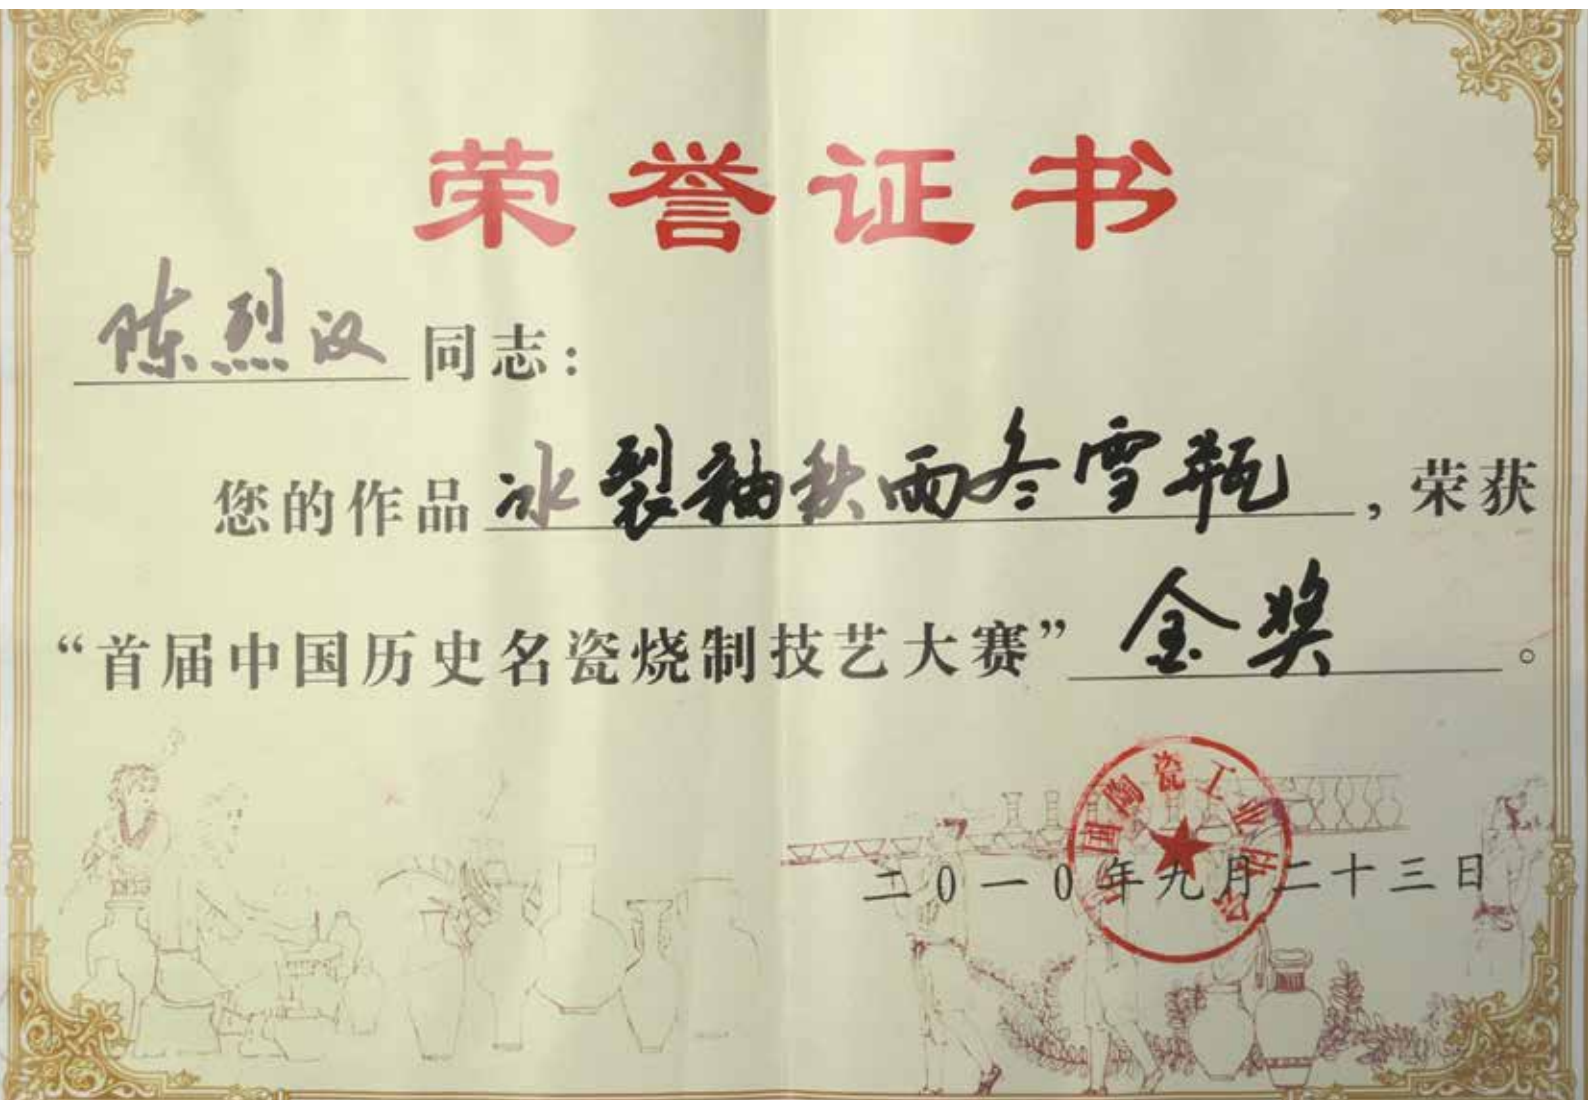 荣誉证书
陈烈汉同志：
您的作品冰裂釉秋雨冬雪瓶，荣获
“首届中国历史名瓷烧制技艺大赛”金奖。
中国陶瓷工业协会
二0一0年九月二十三日